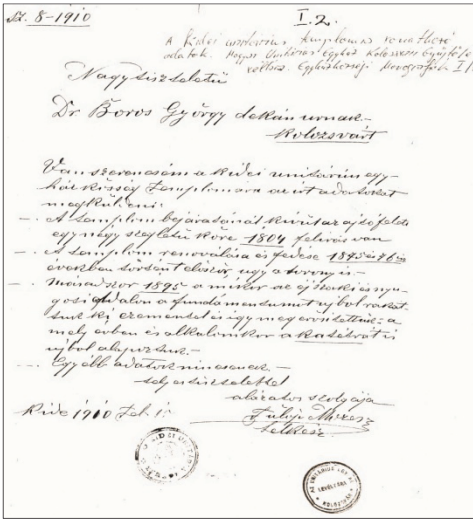 Sz. 8-1910
I. 2.
A kidei unitárius templomra vonatkozó
adatok. Magyar Unitárius egyház Kolozsvári Gyűjtő
Egyházközségi Monográfiák I/
Nagytiszteletű
Dr Boros György dékán urnak
Kolozsvárt
Van szerencsém a kidei unitárius egy-
házközség templomára az irt adatokat
megküldeni:
—. A templom bejáratánál kívül az ajtó felett
egy négy szegletű kőre 1804 felirás van
—. A templom renoválása és fedése 1875 és 76 is
években történt először, úgy a torony is.
—. Másodszor 1895 a mikor az éjszaki és nyu-
gosi oldalon a fundamentumot ujból rakat-
tuk ki cementel és így megerősítettük: a
mely évben és alkalomkor a
ujból
—. Egyébb adatok nincsenek. —
teljes tisztelettel
alázatos szolgája
Kide 1910 Feb. 15
Fülöp Mózes
lelkész
AZ UNITÁRIUS
LEVÉLTÁRA
KOLOZSVÁR